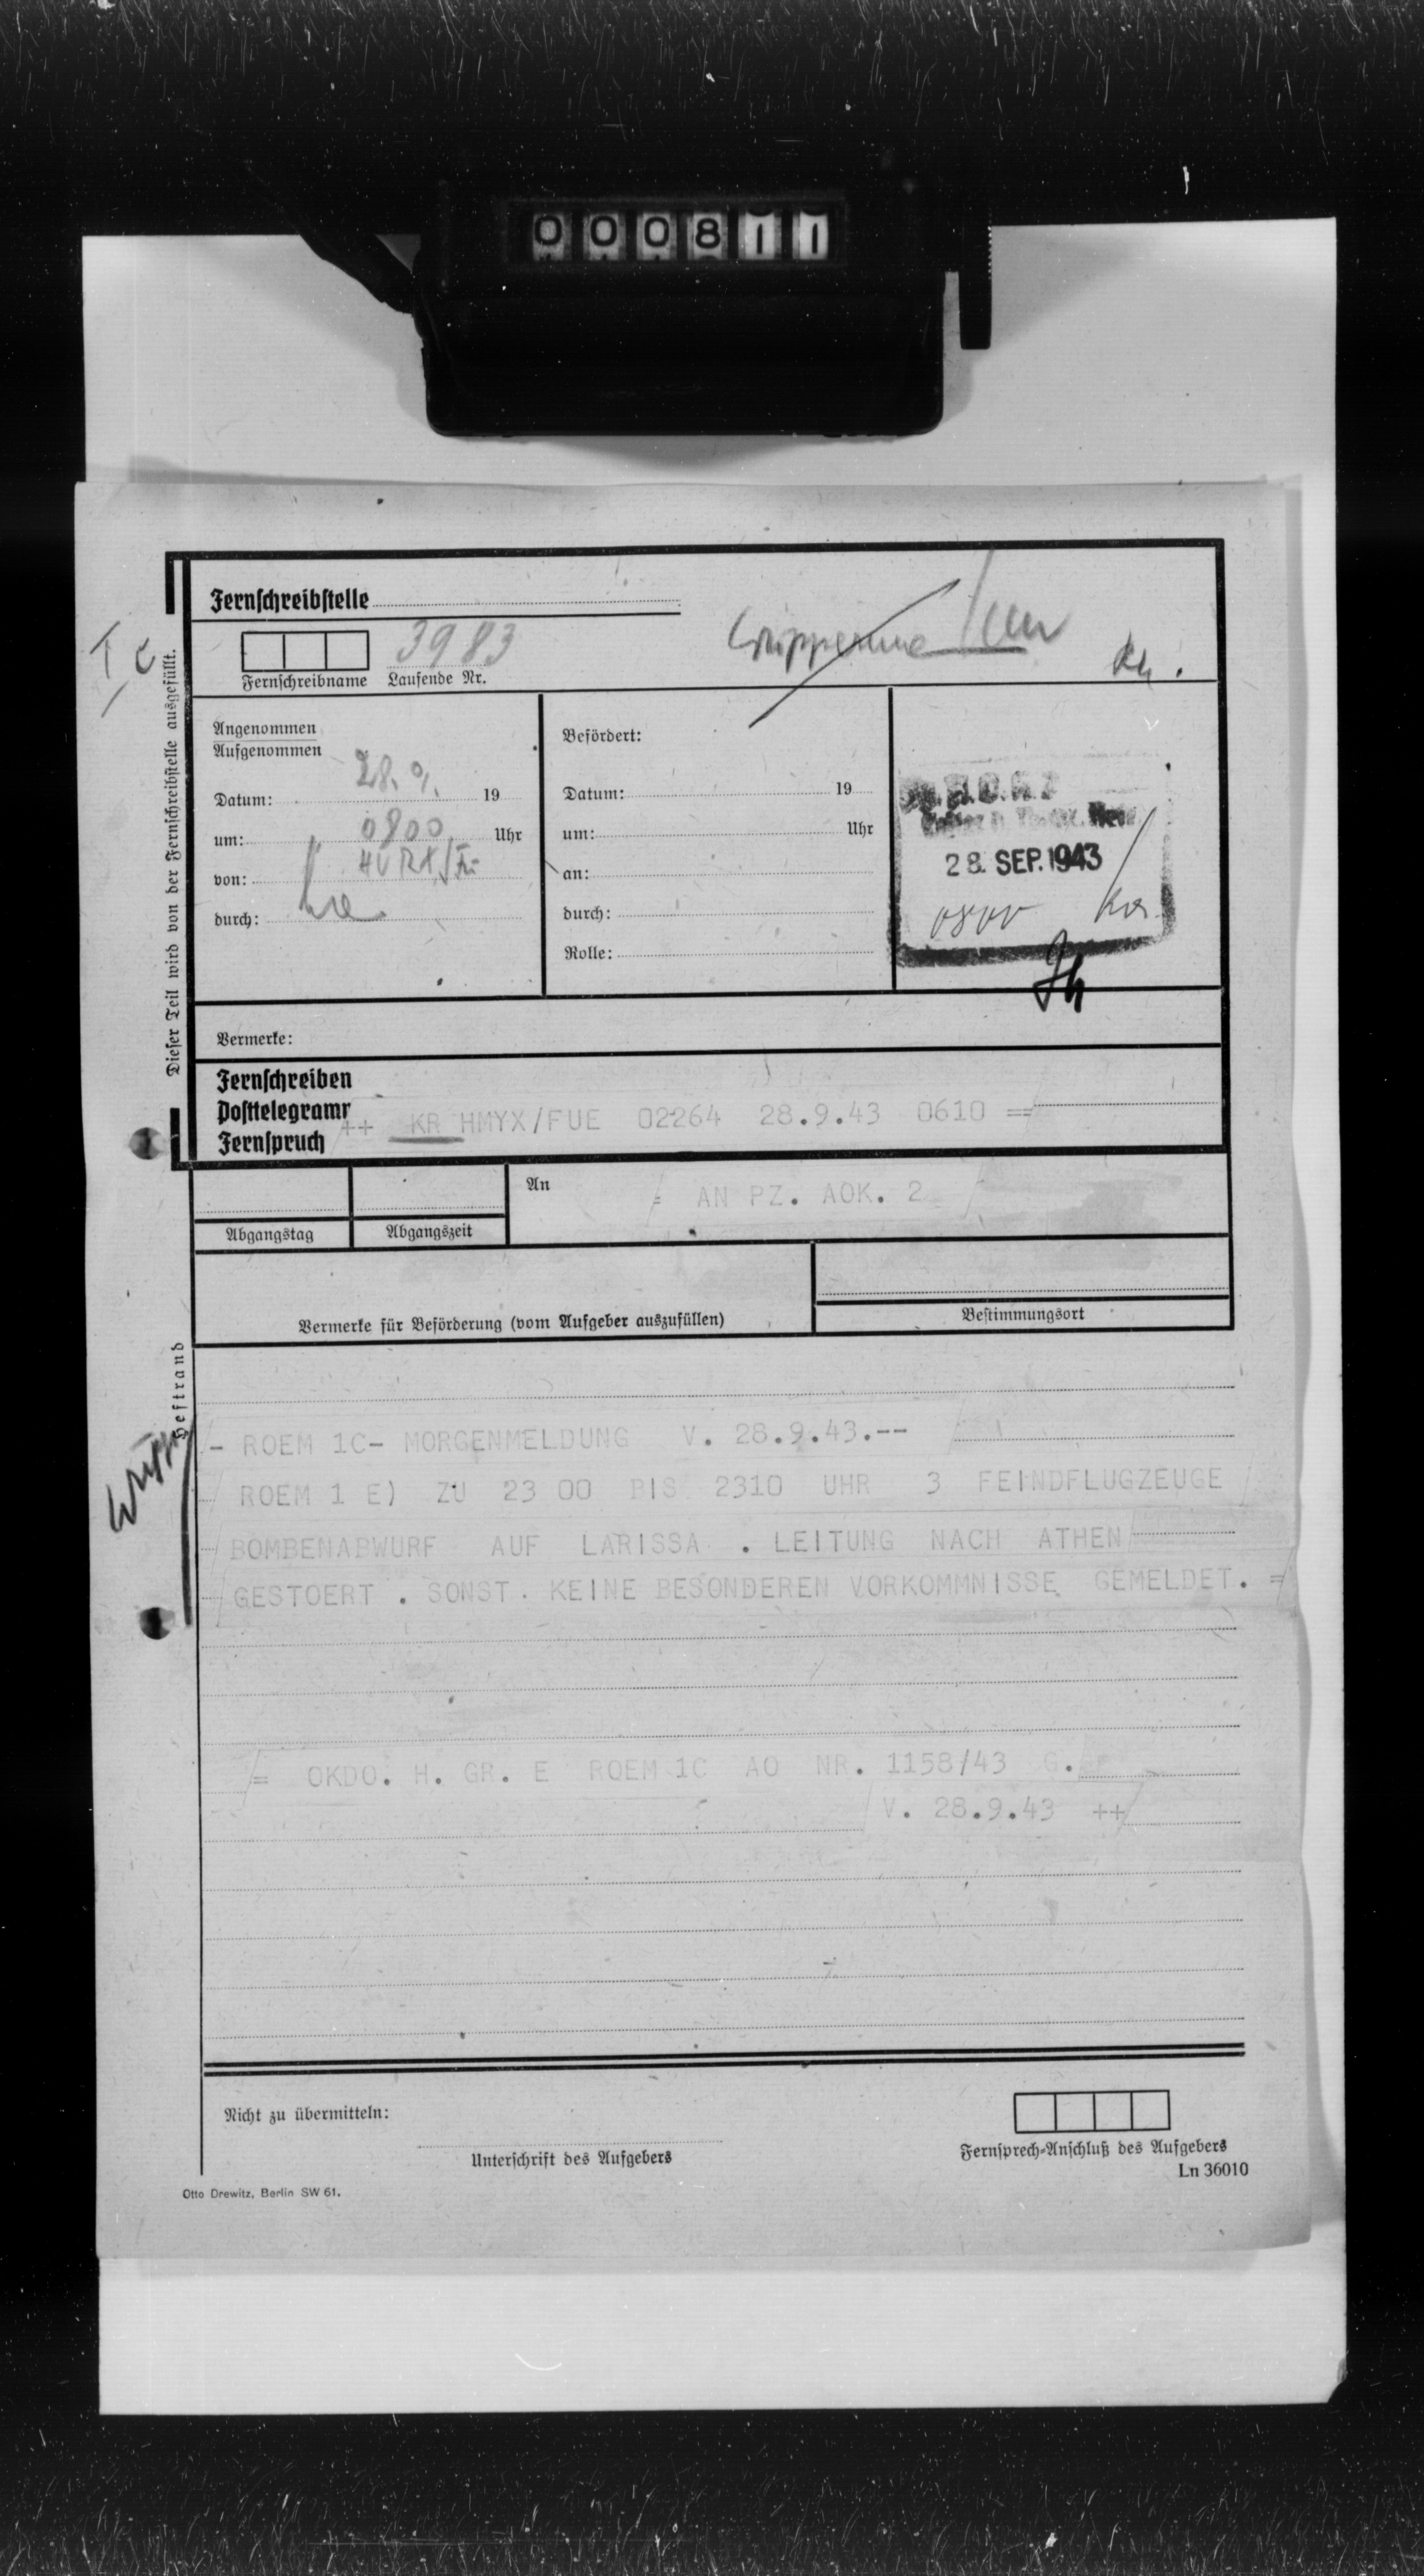 000811
Fernschreibstelle
3983
Fernschreibname Laufende Nr.
Ic
Angenommen
Aufgenommen
Datum: 28.9. 19
um: 0800 Uhr
von:
durch:
Befördert:
Datum: 19
um: Uhr
an:
durch:
Rolle:
28. SEP. 1943
0800
Dieser Teil wird von der Fernschreibstelle ausgefüllt.
Vermerke:
Fernschreiben
Posttelegramm
Fernspruch
++ KR HMYX/FUE 02264 28.9.43 0610 ==
An = AN PZ. AOK. 2
Abgangstag Abgangszeit
Vermerke für Beförderung (vom Aufgeber auszufüllen)
Bestimmungsort
Heftrand
- ROEM 1C- MORGENMELDUNG V. 28.9.43.--
ROEM 1 E) ZU 23 00 BIS 2310 UHR 3 FEINDFLUGZEUGE
BOMBENABWURF AUF LARISSA . LEITUNG NACH ATHEN
GESTOERT . SONST . KEINE BESONDEREN VORKOMMNISSE GEMELDET. =
= OKDO. H. GR. E ROEM 1C AO NR. 1158/43 G.
V. 28.9.43 ++
Nicht zu übermitteln:
Unterschrift des Aufgebers
Fernsprech-Anschluß des Aufgebers
Ln 36010
Otto Drewitz, Berlin SW 61.